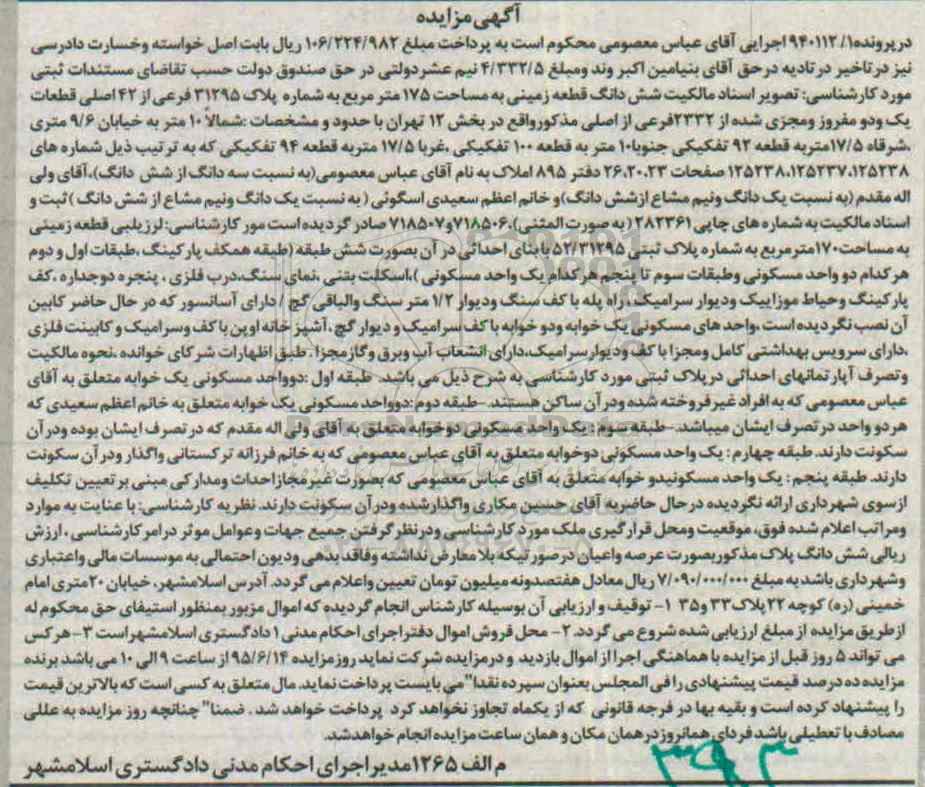 آگهی مزایده
در پرونده ۹۴۰۱۱۲/۱ اجرایی آقای عباس معصومی محکوم است به پرداخت مبلغ ۱۰۶/۲۲۴/۹۸۲ ریال بابت اصل خواسته وخسارت دادرسی
نیز در تاخیر در تادیه در حق آقای بنیامین اکبر وند ومبلغ ۴/۳۳۲/۵ نیم عشر دولتی در حق صندوق دولت حسب تقاضای مستندات ثبتی
مورد کارشناسی: تصویر اسناد مالکیت شش دانگ قطعه زمینی به مساحت ۱۷۵ متر مربع به شماره پلاک ۳۱۲۹۵ فرعی از ۴۲ اصلی قطعات
یک ودو مفروز ومجزی شده از ۲۳۳۲فرعی از اصلی مذکور واقع در بخش ۱۲ تهران با حدود و مشخصات :شمالاً ۱۰ متر به خیابان ۹/۶ متری
،شرقاه ۱۷/۵متربه قطعه ۹۲ تفکیکی جنوبا۱۰ متر به قطعه ۱۰۰ تفکیکی ،غربا ۱۷/۵ متربه قطعه ۹۴ تفکیکی که به ترتیب ذیل شماره های
۱۲۵۲۳۸،۱۲۵۲۳۷،۱۲۵۲۳۸ صفحات ۲۶،۲۰،۲۳ دفتر ۸۹۵ املاک به نام آقای عباس معصومی(به نسبت سه دانگ از شش دانگ)،آقای ولی
اله مقدم (به نسبت یک دانگ ونیم مشاع ازشش دانگ)و خانم اعظم سعیدی اسگوئی ( به نسبت یک دانگ ونیم مشاع از شش دانگ ) ثبت و
اسناد مالکیت به شماره های چاپی ۲۸۲۳۶۱ ( به صورت المثنی)،۷۱۸۵۰۶و۷۱۸۵۰۷ صادر گردیده است مور کارشناسی: لرزیلبی قطعه زمینی
به مساحت۱۷۰مترمربع به شماره پلاک ثبتی ۵۲/۳۱۲۹۵ با بنای احداثی در آن بصورت شش طبقه (طبقه همکف پارکینگ ،طبقات اول و دوم
هرکدام دو واحد مسکونی وطبقات سوم تا پنجم هر کدام یک واحد مسکونی )،اسکلت بتنی ،نمای سنگ،درب فلزی ، پنجره دوجداره ،کف
پارکینگ وحیاط موزاییک ودیوار سرامیک ،راه پله با کف سنگ ودیوار ۱/۲ متر سنگ والباقی گچ / دارای آسانسور که در حال حاضر کابین
آن نصب نگردیده است ،واحد های مسکونی یک خوابه ودو خوابه با کف سرامیک و دیوار گچ ،آشپز خانه اوپن با کف وسرامیک و کابینت فلزی
،دارای سرویس بهداشتی کامل ومجزا با کف ودیوار سرامیک،دارای انشعاب آب وبرق وگاز مجزا . طبق اظهارات شرکای خوانده ،نحوه مالکیت
وتصرف آپارتمانهای احداثی در پلاک ثبتی مورد کارشناسی به شرح ذیل می باشد. طبقه اول :دوواحد مسکونی یک خوابه متعلق به آقای
عباس معصومی که به افراد غیر فروخته شده ودر آن ساکن هستند. -طبقه دوم :دوواحد مسکونی یک خوابه متعلق به خانم اعظم سعیدی که
هر دو واحد در تصرف ایشان میباشد. -طبقه سوم : یک واحد مسکونی دوخوابه متعلق به آقای ولی اله مقدم که در تصرف ایشان بوده ودر آن
سکونت دارند. طبقه چهارم : یک واحد مسکونی دوخوابه متعلق به آقای عباس معصومی که به خانم فرزانه ترکستانی واگذار ودر آن سکونت
دارند. طبقه پنجم : یک واحد مسکونیدو خوابه متعلق به آقای عباس معصومی که بصورت غیر مجاز احداث ومدارکی مبنی بر تعیین تکلیف
ازسوی شهرداری ارائه نگردیده در حال حاضر به آقای حسین مکاری واگذار شده ودر آن سکونت دارند. نظریه کارشناسی: با عنایت به موارد
ومراتب اعلام شده فوق، موقعیت ومحل قرارگیری ملک مورد کارشناسی ودر نظر گرفتن جمیع جهات وعوامل موثر در امر کارشناسی ، ارزش
ریالی شش دانگ پلاک مذکور بصورت عرصه واعیان در صورتیکه بلا معارض نداشته وفاقد بدهی ودیون احتمالی به موسسات مالی واعتباری
وشهرداری باشد به مبلغ ۷/۰۹۰/۰۰۰/۰۰۰ ریال معادل هفتصدونه میلیون تومان تعیین واعلام می گردد. آدرس اسلامشهر، خیابان ۲۰متری امام
خمینی (ره) کوچه ۲۲ پلاک۳۳ و۳۵ ۱- توقیف و ارزیابی آن بوسیله کارشناس انجام گردیده که اموال مزبور بمنظور استیفای حق محکوم له
از طریق مزایده از مبلغ ارزیابی شده شروع می گردد. ۲- محل فروش اموال دفتر اجرای احکام مدنی ۱ دادگستری اسلامشهر است ۳- هر کس
می تواند ۵ روز قبل از مزایده با هماهنگی اجرا از اموال بازدید و در مزایده شرکت نماید روز مزایده ۹۵/۶/۱۴ از ساعت ۹ الی ۱۰ می باشد برنده
مزایده ده درصد قیمت پیشنهادی را فی المجلس بعنوان سپرده نقدا" می بایست پرداخت نماید. مال متعلق به کسی است که بالاترین قیمت
را پیشنهاد کرده است و بقیه بها در فرجه قانونی که از یکماه تجاوز نخواهد کرد پرداخت خواهد شد . ضمنا" چنانچه روز مزایده به عللی
مصادف با تعطیلی باشد فردای همانروز در همان مکان و همان ساعت مزایده انجام خواهدشد.
م الف ۱۲۶۵ مدیر اجرای احکام مدنی دادگستری اسلامشهر